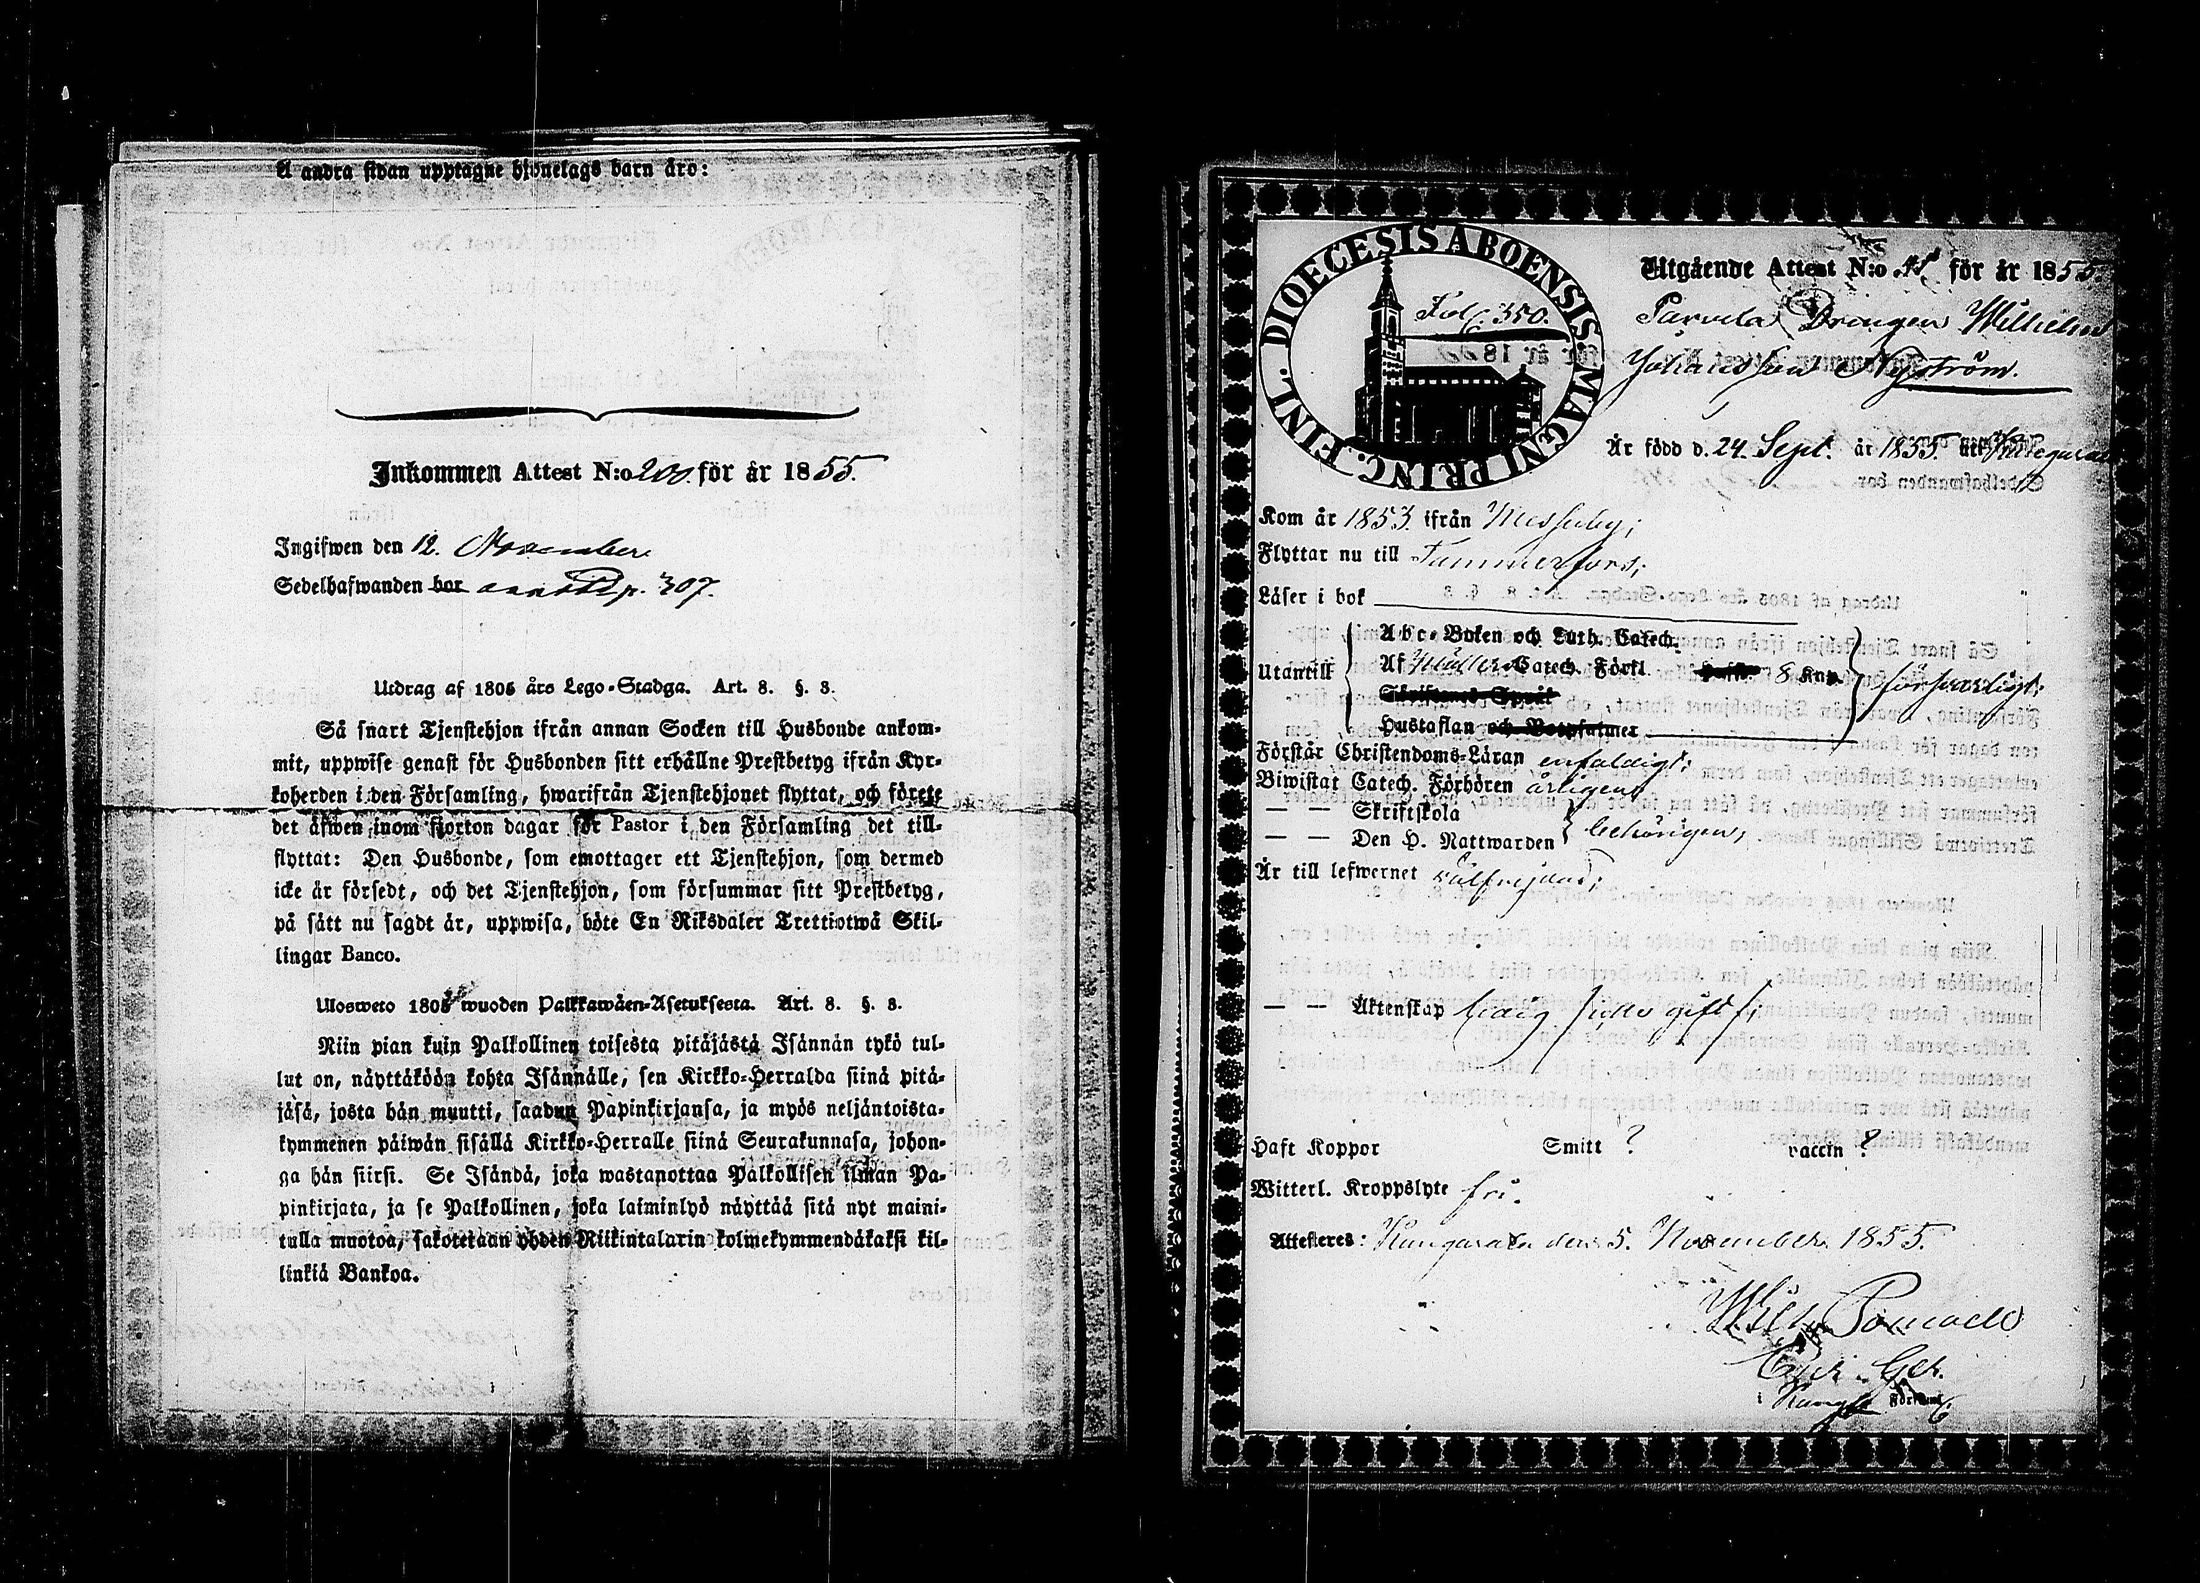 Å andra sidan upptagne hionelags barn äro:
Inkommen Attest N:o 200. för år 1855.
Ingifwen den 12. November
Sedelhafwanden bor p. 307.
Utdrag af 1805 års Lego-Stadga. Art. 8. §. 3.
Så snart Tjenstehjon ifrån annan Socken till Husbonde ankom-
mit, uppwise genast för Husbonden sitt erhållne Prestbetyg ifrån Kyr-
koherden i den Församling, hwarifrån Tjenstehjonet flyttat, och förete
det äfwen inom fjorton dagar för Pastor i den Församling det till-
flyttat: Den Husbonde, som emottager ett Tjenstehjon, som dermed
icke är försedt, och det Tjenstehjon, som försummar sitt Prestbetyg,
på sätt nu sagdt är, uppwisa, böte En Riksdaler Trettiotwå Skil-
lingar Banco.
Ulosweto 1805 wuoden Palkkawäen-Asetuksesta. Art. 8. §. 3.
Niin pian kuin Palkollinen toisesta pitäjästä Isännän tykö tul-
lut on, näyttäköön kohta Isännälle, sen Kirkko-Herralda siinä pitä-
jäsä, josta hän muutti, saadun Papinkirjansa, ja myös neljäntoista-
kymmenen päiwän sisällä Kirkko-Herralle siinä Seurakunnasa, johon-
ga hän siirsi. Se Isändä, joka wastanottaa Palkollisen ilman Pa-
pinkirjata, ja se Palkollinen, joka laiminlyö näyttää sitä nyt maini-
tulla muotoa, sakotetaan yhden Riikintalarin kolmekymmendäkaksi kil-
linkiä Bankoa.
DIOECESIS ABOENSIS. MAGNI PRINC. FINL.
Fol. 350.
Utgående Attest N:o för år 1855.
Parvela Drängen Wilhelm
Johansson Nyström.
Är född d. 24. Sept. år 1835. uti
Kom år 1853. ifrån Messuby;
Flyttar nu till Tammerfors;
Läser i bok
Utantill
Abc-Boken och Luth. Catech.
Af Möllers Catech. Förkl. 8 Kap.
Skriftenes Språk
Hustaflan och Botpsalmer
försvarligt;
Förstår Christendoms-Läran enfaldigt;
Biwistat Catech. Förhören årligen
— — Skriftskola
— — Den H. Nattwarden
behörigen;
Är till lefwernet välfrejdad;
— — Äktenskap ledig
Haft Koppor Smitt ? vaccin ?
Witterl. Kroppslyte fri.
Attesteres: Kangasala den 5. November 1855.
Wilh.
i Församl.